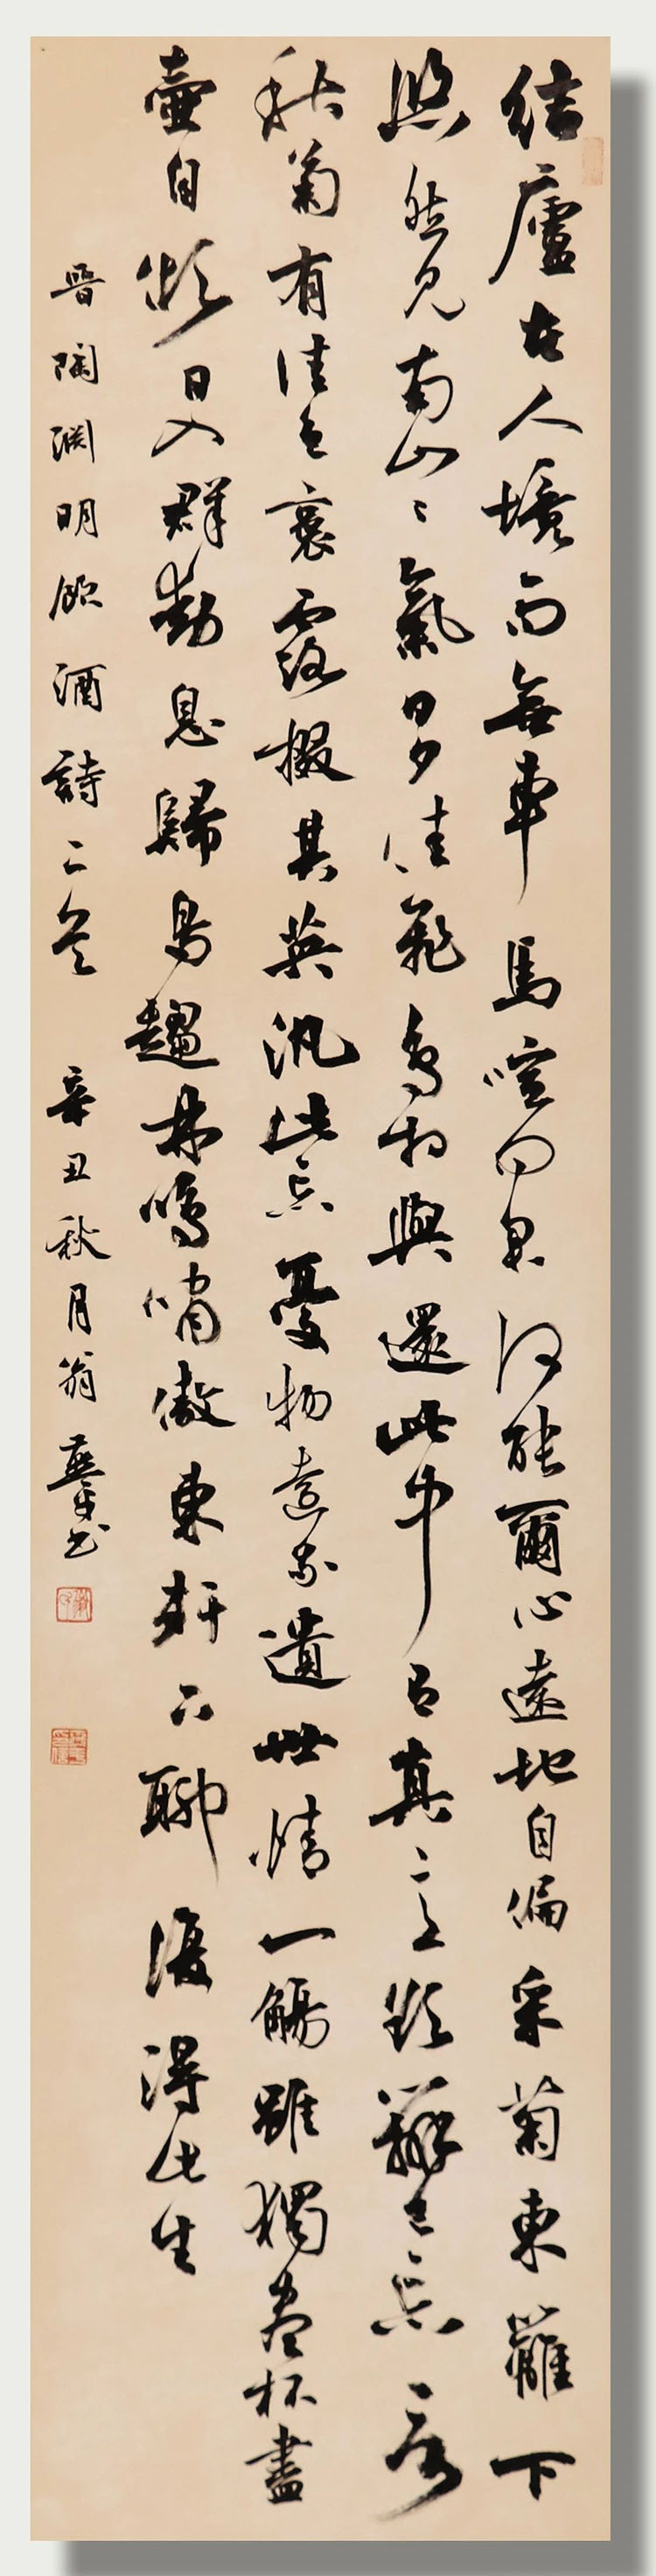 結廬在人境而無車馬喧問君何能爾心遠地自偏采菊東籬下
悠然見南山山氣日夕佳飛鳥相與還此中有真意欲辯已忘言
秋菊有佳色裛露掇其英汎此忘憂物遠我遺世情一觴雖獨盡杯盡
壺自傾日入群動息歸鳥趨林鳴嘯傲東軒下聊復得此生
晉陶淵明飲酒詩二首 辛丑秋月翁 書